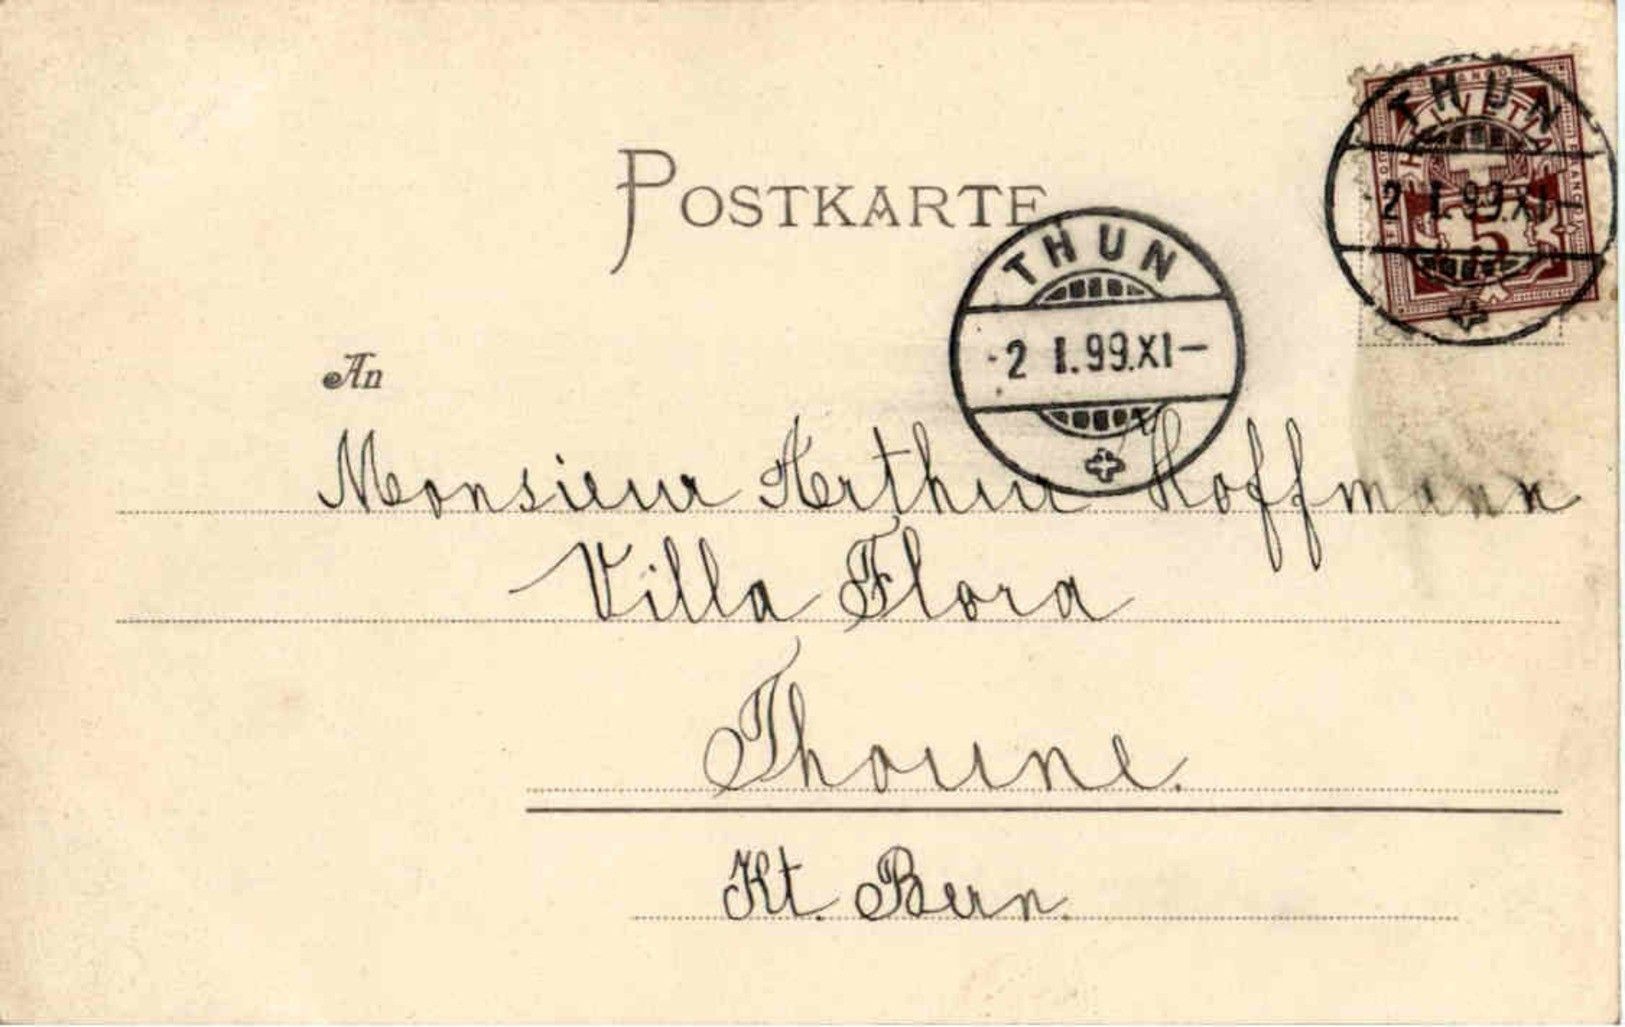 POSTKARTE
THUN
2 I.99.XI-
HELVETIA
15
THUN
2 I.99.XI-
An
Monsieur Arthur Hoffmann
Villa Flora
Thoune.
Kt. Bern.